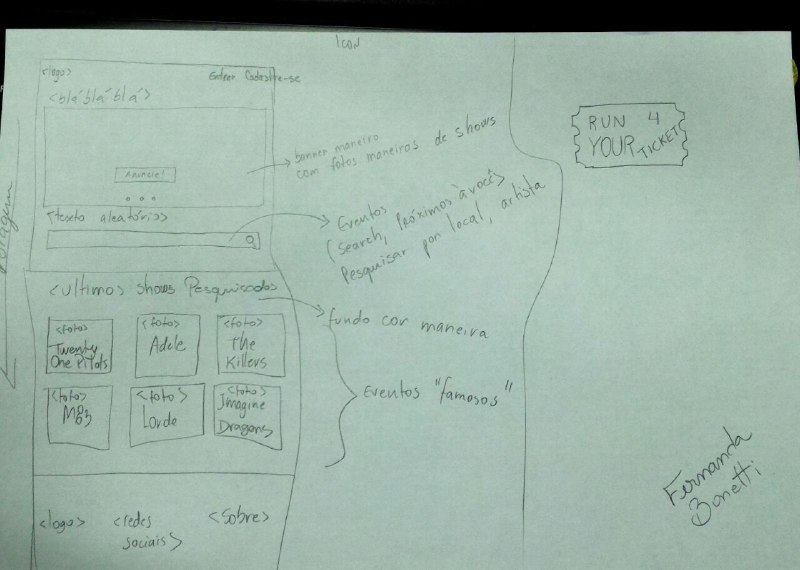 ICON
<logo> Entrar Cadastre-se
<blá blá blá>
Anuncie!
<texto aleatório>
banner maneiro
com fotos maneiras de shows
Eventos
(search, Próximos à você)
Pesquisar por local, artista
<ultimos shows Pesquisados
fundo cor maneira
<foto>
Twenty
One Pilots
<foto>
Adele
<foto>
the
Killers
<foto>
<foto>
Lorde
<foto>
Imagine
Dragons
Eventos "famosos"
<logo>
<redes
sociais>
<Sobre>
RUN 4
YOUR TICKET
Fernanda
Bonetti